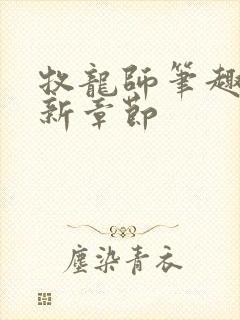 牧龍師筆趣
新章節
塵染青衣